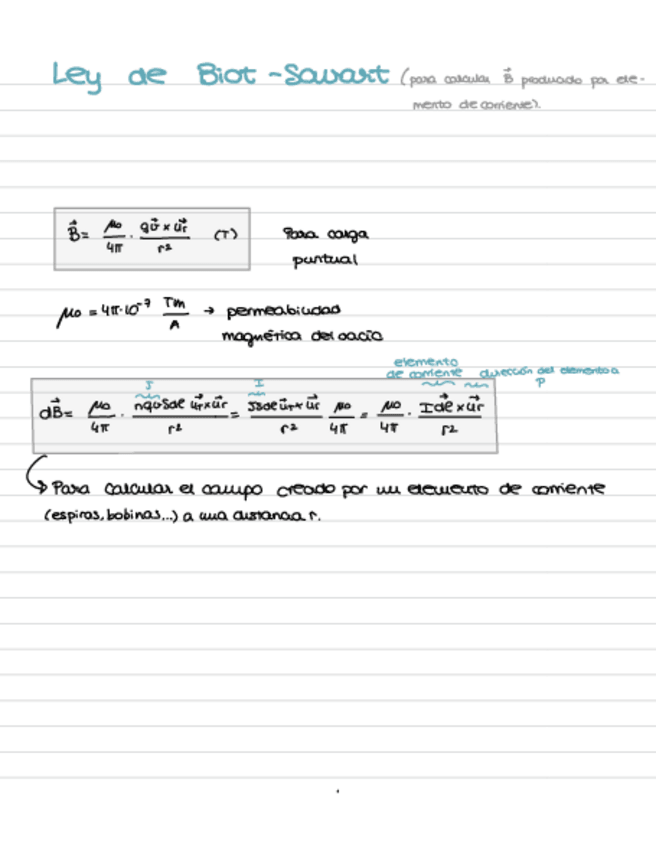 Ley de Biot-Savart (para calcular B⃗ producido por ele-
mento de corriente).
B⃗ = μ₀/4π · qv⃗ × u⃗r/r² (T) Para carga
puntual
μ₀ = 4π·10⁻⁷ Tm/A → permeabilidad
magnética del vacío
elemento
de corriente dirección del elemento a
J I P
dB⃗ = μ₀/4π · nqvSdl u⃗T × u⃗r/r² = JSdl u⃗T × u⃗r/r² μ₀/4π = μ₀/4π · Idl⃗ × u⃗r/r²
Para calcular el campo creado por un elemento de corriente
(espiras, bobinas,..) a una distancia r.